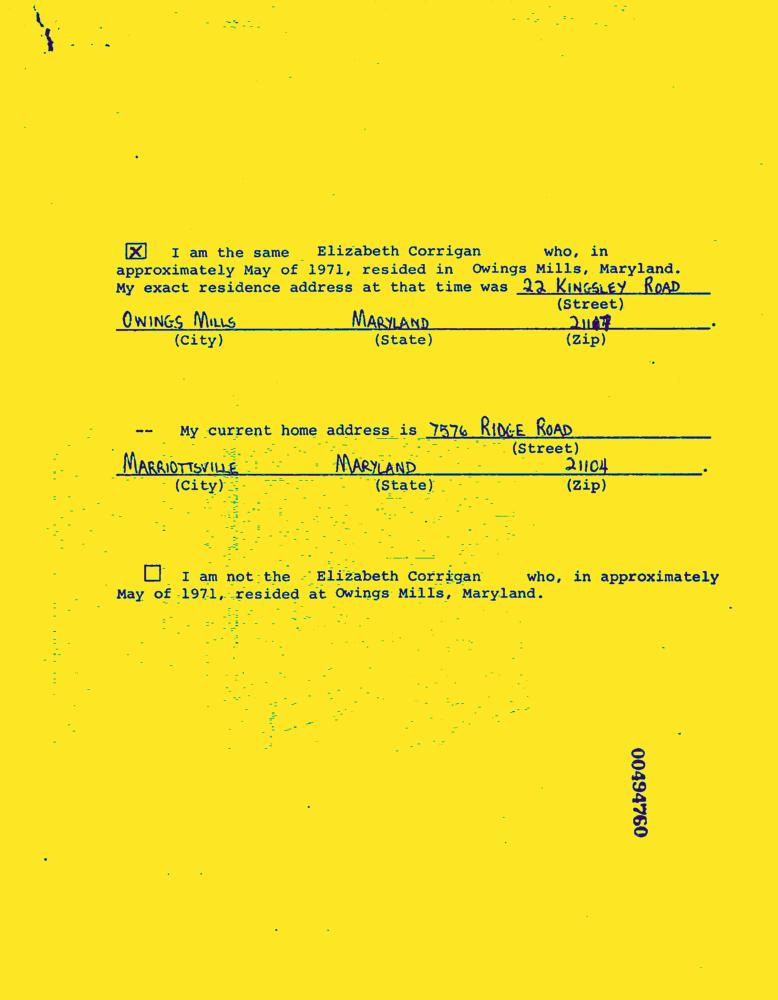 [X] I am the same Elizabeth Corrigan who, in
approximately May of 1971, resided in Owings Mills, Maryland.
My exact residence address at that time was 22 KINGSLEY ROAD
(Street)
OWINGS MILLS MARYLAND 21117.
(City) (State) (Zip)
-- My current home address is 7576 RIDGE ROAD
(Street)
MARRIOTTSVILLE MARYLAND 21104.
(City) (State) (Zip)
☐ I am not the Elizabeth Corrigan who, in approximately
May of 1971, resided at Owings Mills, Maryland.
00494760